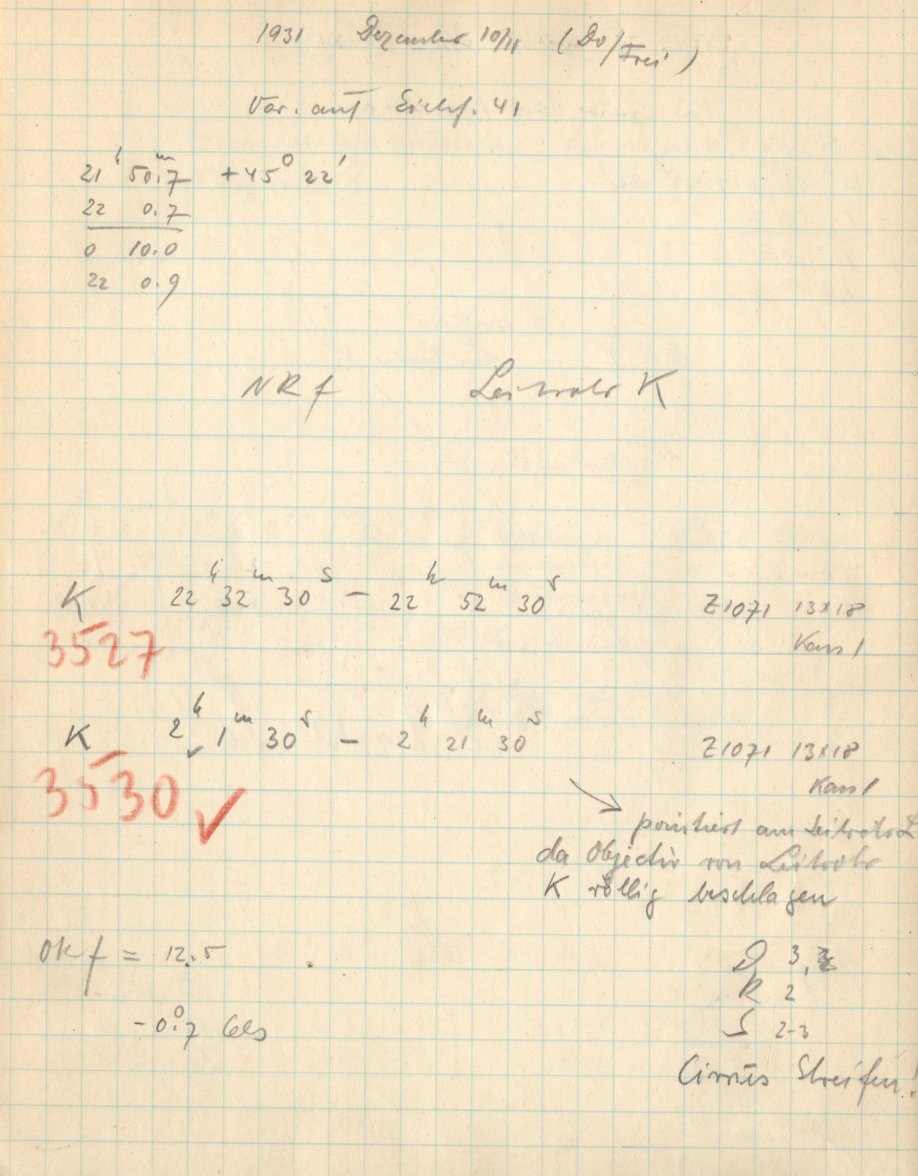 1931 Dezember 10/11 (Do/Frei)
Var. auf Eichf. 41
21ʰ 50ᵐ.7 +45° 22'
22 0.7
0 10.0
22 0.9
NRf Leitrohr K
K 22ʰ 32ᵐ 30ˢ – 22ʰ 52ᵐ 30ˢ Z1071 13x18
Kass 1
3527
K 2ʰ 1ᵐ 30ˢ – 2ʰ 21ᵐ 30ˢ Z1071 13x18
Kass 1
3530 ✓
pointiert am Leitrohr L
da Objectiv von Leitrohr
K völlig beschlagen
OKf = 12.5
D 3,
R 2
-0°.7 Cels
S 2-3
Cirrus Streifen!